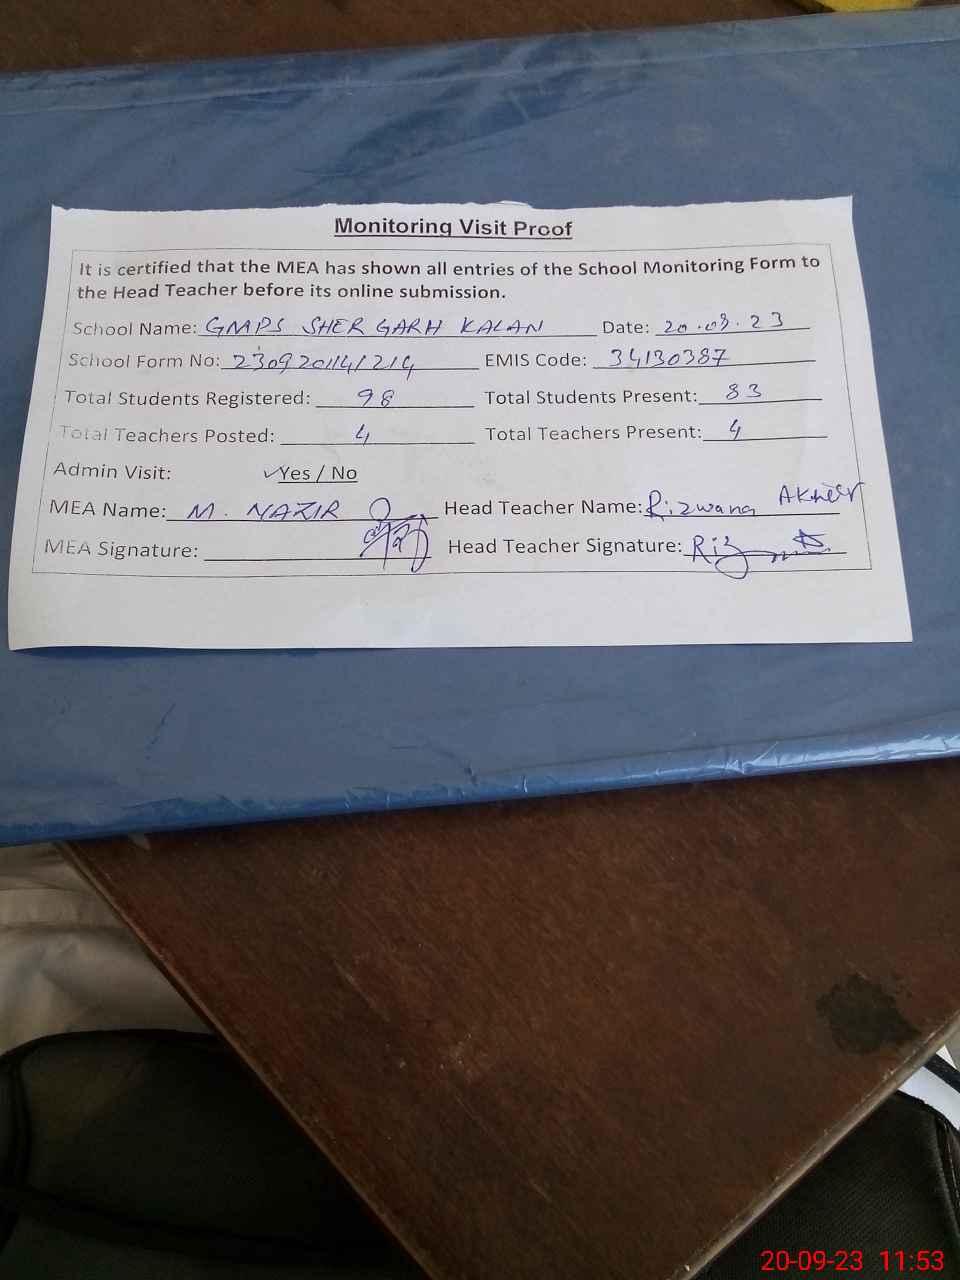 Monitoring Visit Proof
It is certified that the MEA has shown all entries of the School Monitoring Form to
the Head Teacher before its online submission.
School Name: GMPS SHER GARH KALAN Date: 20.09.23
School Form No: 2309201141214 EMIS Code: 34130387
Total Students Registered: 98 Total Students Present: 83
Total Teachers Posted: 4 Total Teachers Present: 4
Admin Visit: ✓Yes / No
MEA Name: M. NAZIR Head Teacher Name: Rizwana Akhter
MEA Signature: Head Teacher Signature: Riz
20-09-23 11:53